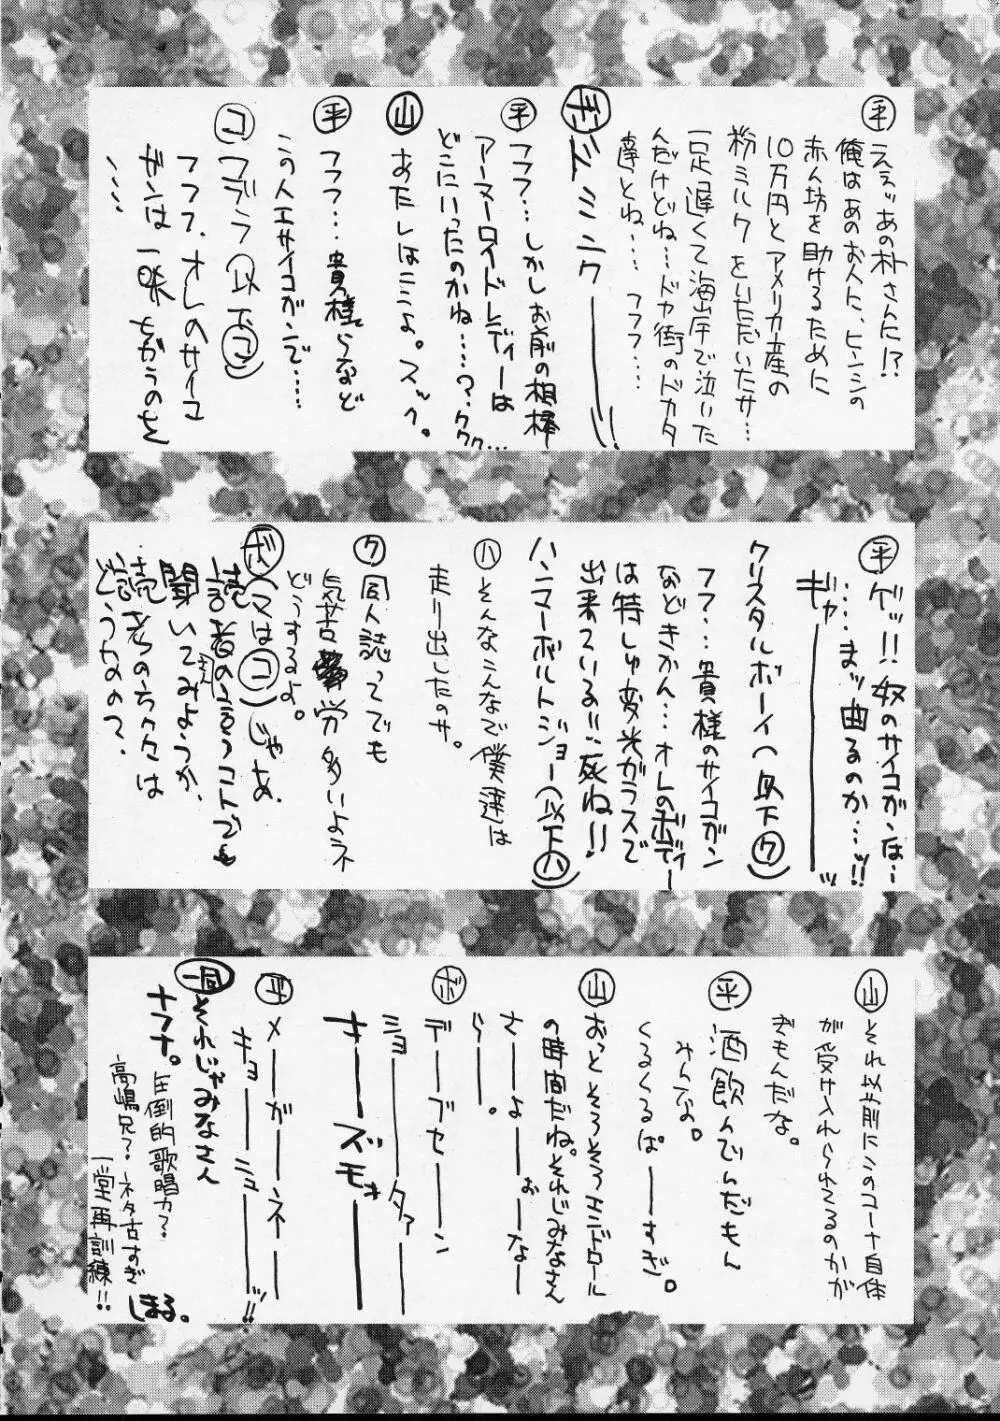 ㊥ えぇッあの朴さんに!?
俺はあのお人に、ヒンシの
赤ん坊を助けるために
10万円とアメリカ産の
粉ミルクをいただいたサ…
一足遅くて海岸で泣いた
んだけどね…ドヤ街のドカタ
達とね…フフフ…
ボ ドミニクーーー!!
平 フフフ…しかしお前の相棒
アーマーロイドレディーは
どこにいったのかね……?ククク…
山 あたしはここよ。スッ。
平 フフフ…貴様らなど
この人工サイコガンで……
コブラ(以下コ)
フフフ、オレのサイコ
ガンは一味ちがうのを
、、、、
平 ゲッ!!奴のサイコガンは…
…まッ曲るのか…!!
ギャーーーッ
クリスタルボーイ(以下ク)
フフ…貴様のサイコガン
などきかん…オレのボディー
は特しゅ変光ガラスで
出来ている!!死ね!!
ハンマーボルトジョー(以下ハ)
ハ そんなこんなで僕達は
走り出したのサ。
ク 同人誌ってでも
気苦労多いよネ
どうするよ。
ボ(マはコ)じゃあ
読者の言うコトでも
聞いてみようか、
読者のちみは
どうなの?
山 それ以前にこのコーナ自体
が受け入れられてるのかが
ぎもんだな。
平 酒飲んでんだもん
みんなよ。
くるくるぱーーすぎ。
山 おっとそろそろエンドロール
の時間だね。それじみなさん
さーよーおーなー
らー。
ボ デーブセーン
ショーータァー
さーズモォーー
平 メーガーネー
キョーーミューッ!!
一同 それじゃみなさん
ナフナ。
圧倒的歌唱力?
高嶋兄?ネタ古すぎ
一堂再訓練!!
しまる。